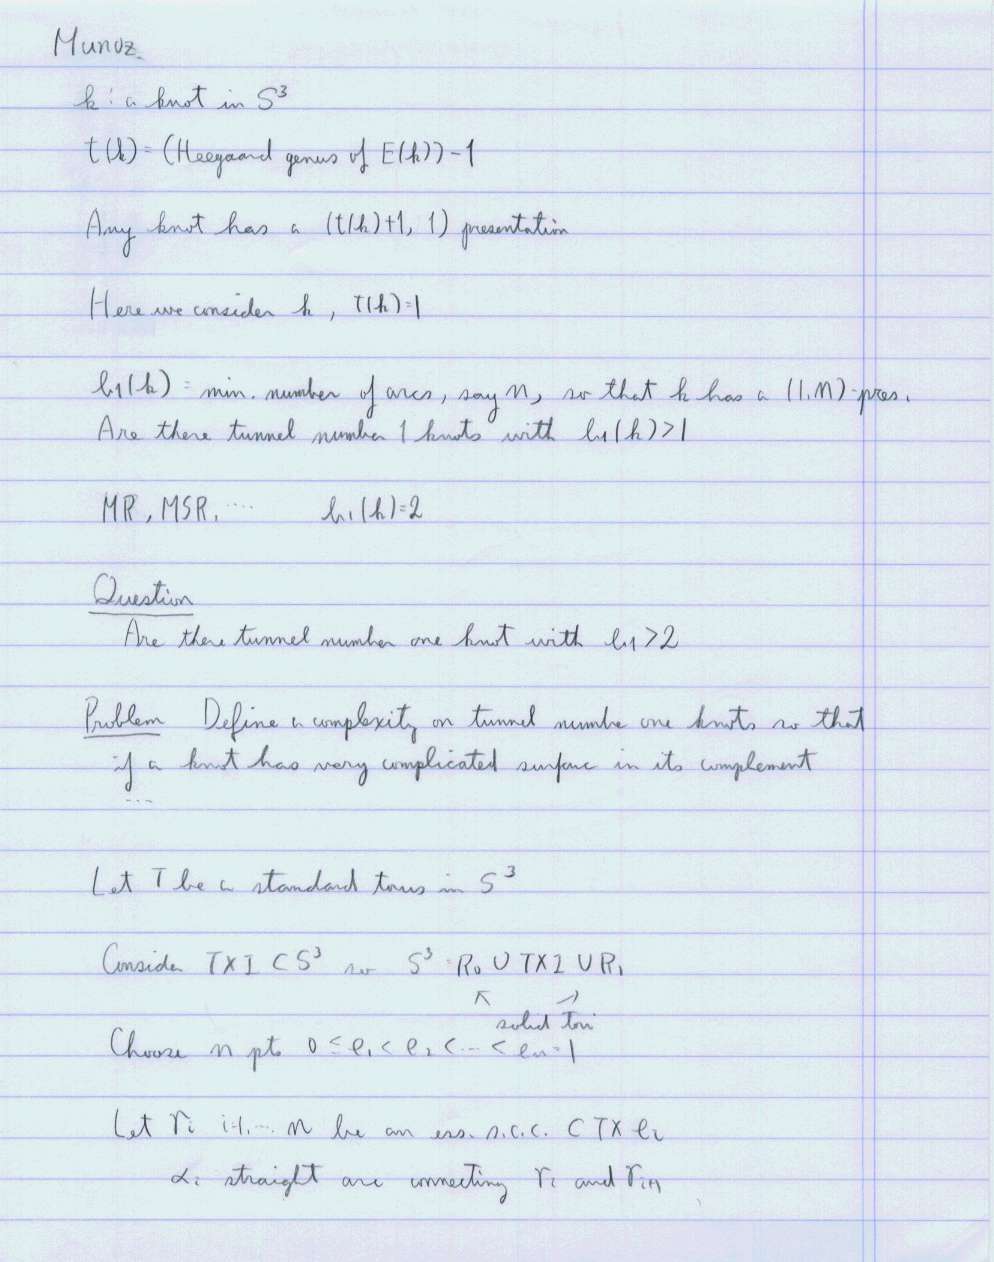 Munoz
k: a knot in S³
t(k) = (Heegaard genus of E(k)) - 1
Any knot has a (t(k)+1, 1) presentation
Here we consider k, t(k)=1
b₁(k) = min. number of arcs, say n, so that k has a (1,n)-pres.
Are there tunnel number 1 knots with b₁(k)>1
MR, MSR, .... b₁(k)=2
Question
Are there tunnel number one knot with b₁>2
Problem Define a complexity on tunnel numbe one knots so that
if a knot has very complicated surface in its complement
...
Let T be a standard torus in S³
Consider T×I ⊂ S³ so S³ = R₀ ∪ T×I ∪ R₁
solid tori
Choose n pts 0 ≤ e₁ < e₂ < ... < eₙ = 1
Let γᵢ i=1,... n be an ess. s.c.c. ⊂ T×eᵢ
αᵢ straight arc connecting γᵢ and γᵢ₊₁